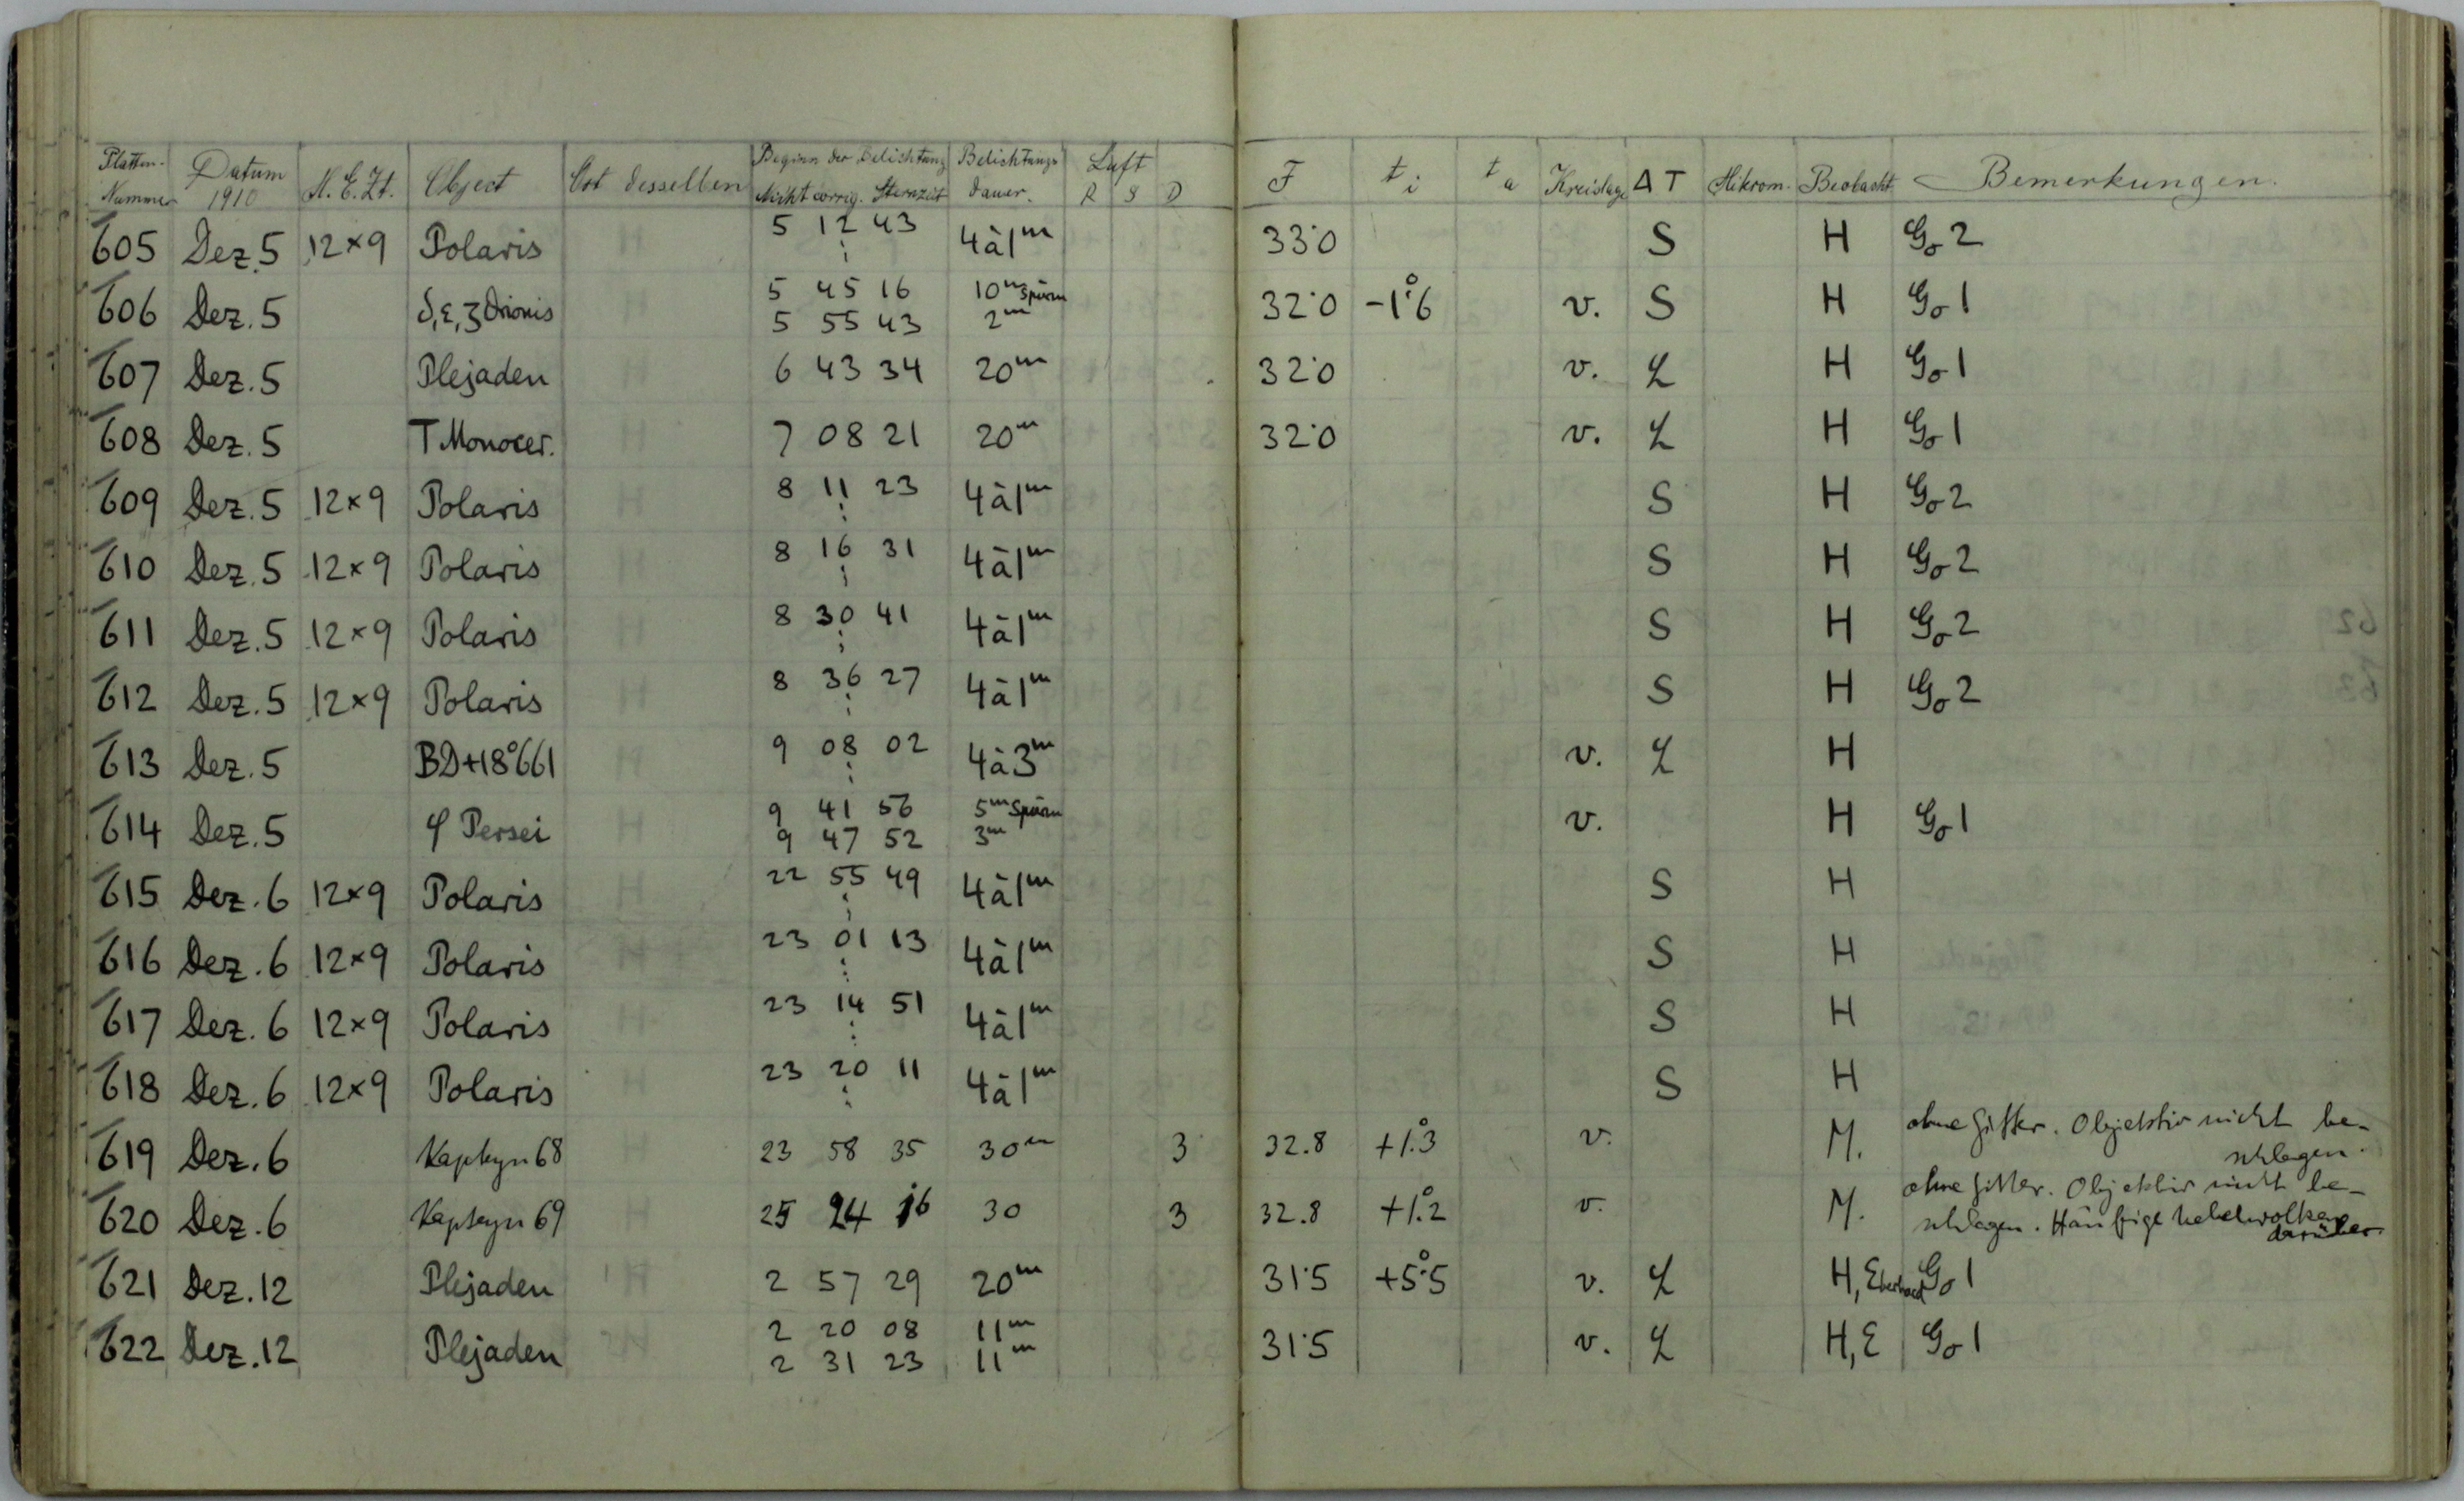 Platten-Nummer Datum 1910 M.E.Zt. Object Ort desselben Beginn der Belichtung Nicht corrig. Sternzeit Belichtungsdauer. Luft R S D F t i t a Kreislage Δ T Mikrom. Beobacht Bemerkungen.
605 Dez. 5 12×9 Polaris 5 12 43 ⋮ 4à1m 33.0 S H Go 2
606 Dez. 5 δ, ε, ζ Orionis 5 45 16 10m Spuren 32.0 -1.°6 v. S H Go 1
5 55 43 2m
607 Dez. 5 Plejaden 6 43 34 20m 32.0 v. L H Go 1
608 Dez. 5 T Monocer. 7 08 21 20m 32.0 v. L H Go 1
609 Dez. 5 12×9 Polaris 8 11 23 ⋮ 4à1m S H Go 2
610 Dez. 5 12×9 Polaris 8 16 31 ⋮ 4à1m S H Go 2
611 Dez. 5 12×9 Polaris 8 30 41 ⋮ 4à1m S H Go 2
612 Dez. 5 12×9 Polaris 8 36 27 ⋮ 4à1m S H Go 2
613 Dez. 5 BD+18°661 9 08 02 ⋮ 4à3m v. L H
614 Dez. 5 φ Persei 9 41 56 5m Spuren v. H Go 1
9 47 52 3m
615 Dez. 6 12×9 Polaris 22 55 49 ⋮ 4à1m S H
616 Dez. 6 12×9 Polaris 23 01 13 ⋮ 4à1m S H
617 Dez. 6 12×9 Polaris 23 14 51 ⋮ 4à1m S H
618 Dez. 6 12×9 Polaris 23 20 11 ⋮ 4à1m S H
619 Dez. 6 Kapteyn 68 23 58 35 30m 3 32.8 +1.°3 v. M. ohne Gitter. Objektiv nicht be-
schlagen.
620 Dez. 6 Kapteyn 69 24 16 30 3 32.8 +1.°2 v. M. ohne Gitter. Objektiv nicht be-
schlagen. Häufige Nebelwolken
darüber.
621 Dez. 12 Plejaden 2 57 29 20m 31.5 +5.°5 v. L H, Eberhard Go 1
622 Dez. 12 Plejaden 2 20 08 11m 31.5 v. L H, E Go 1
2 31 23 11m